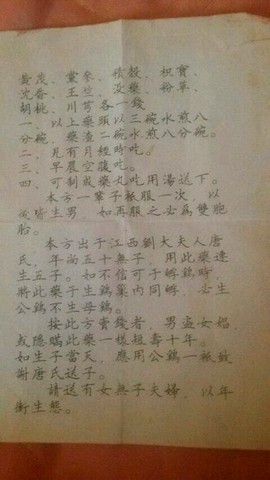 黄茂、党参、積殻、枳实、
沈香、王竺、汝藥、粉草、
胡桃、川芎各一錢
一、以上藥頭以三碗水煎八
分碗，藥渣二碗水煎八分碗。
二、見有月經時吃。
三、早晨空腹吃。
四、可制成藥丸吃用湯送下。
本方一輩子秪服一次，以
後皆生男，如再服之必爲雙胞
胎。
本方出于江西劉大夫人唐
氏，年尚五十無子，用此藥連
生五子。如不信可于孵鷄時，
將此藥于生鷄集内同孵，必生
公鷄不生母鷄。
按此方賣錢者，男盗女娼
或隱瞞此藥一樣短壽十年。
如生子當天，應用公鷄一秪致
謝唐氏送子。
請送有女無子夫婦，以年
衝生態。